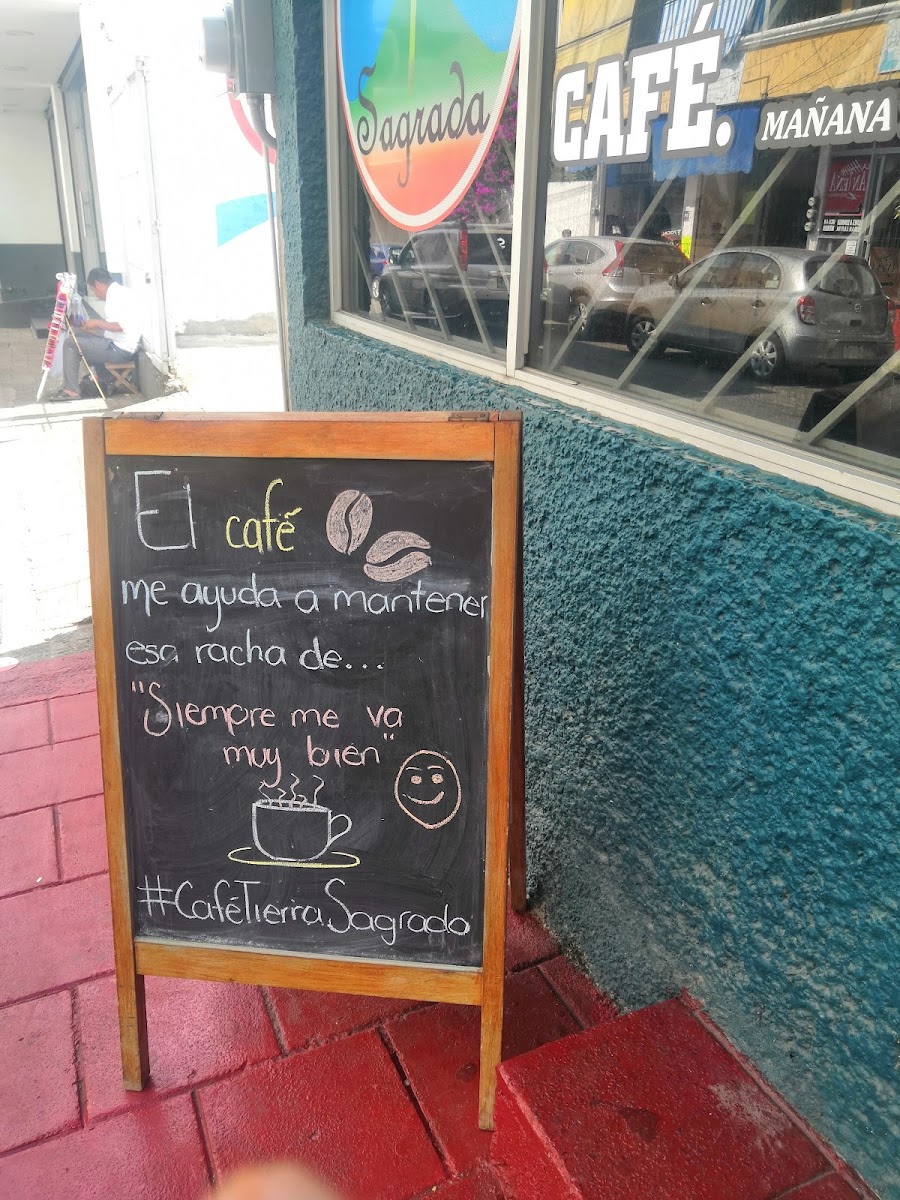 Sagrada
CAFÉ.
MAÑANA
El café
me ayuda a mantener
esa racha de...
"Siempre me va
muy bien"
#CaféTierraSagrada